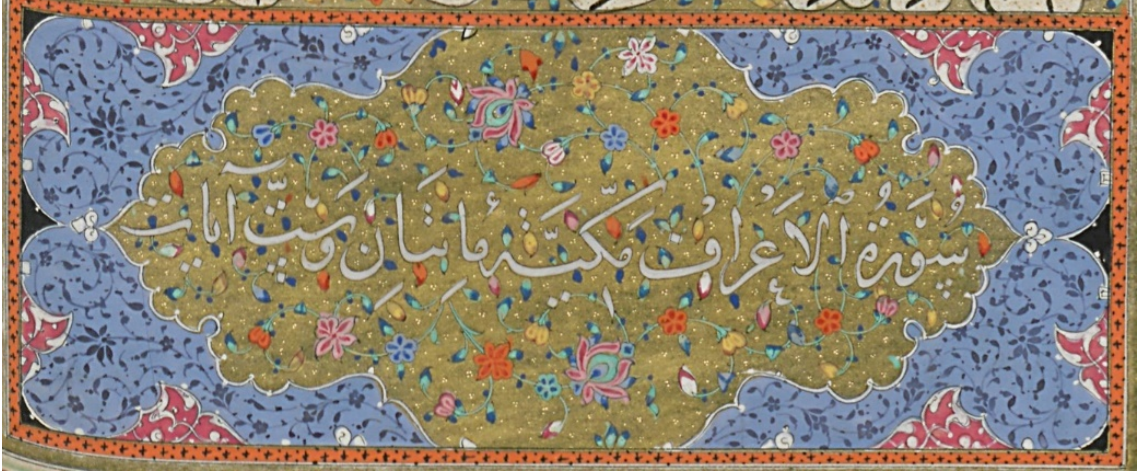 سُوْرَةُ الْاَعْرَافِ مَكِّيَّةٌ مِائَتَانِ وَسِتُّ اٰيَاتٍ